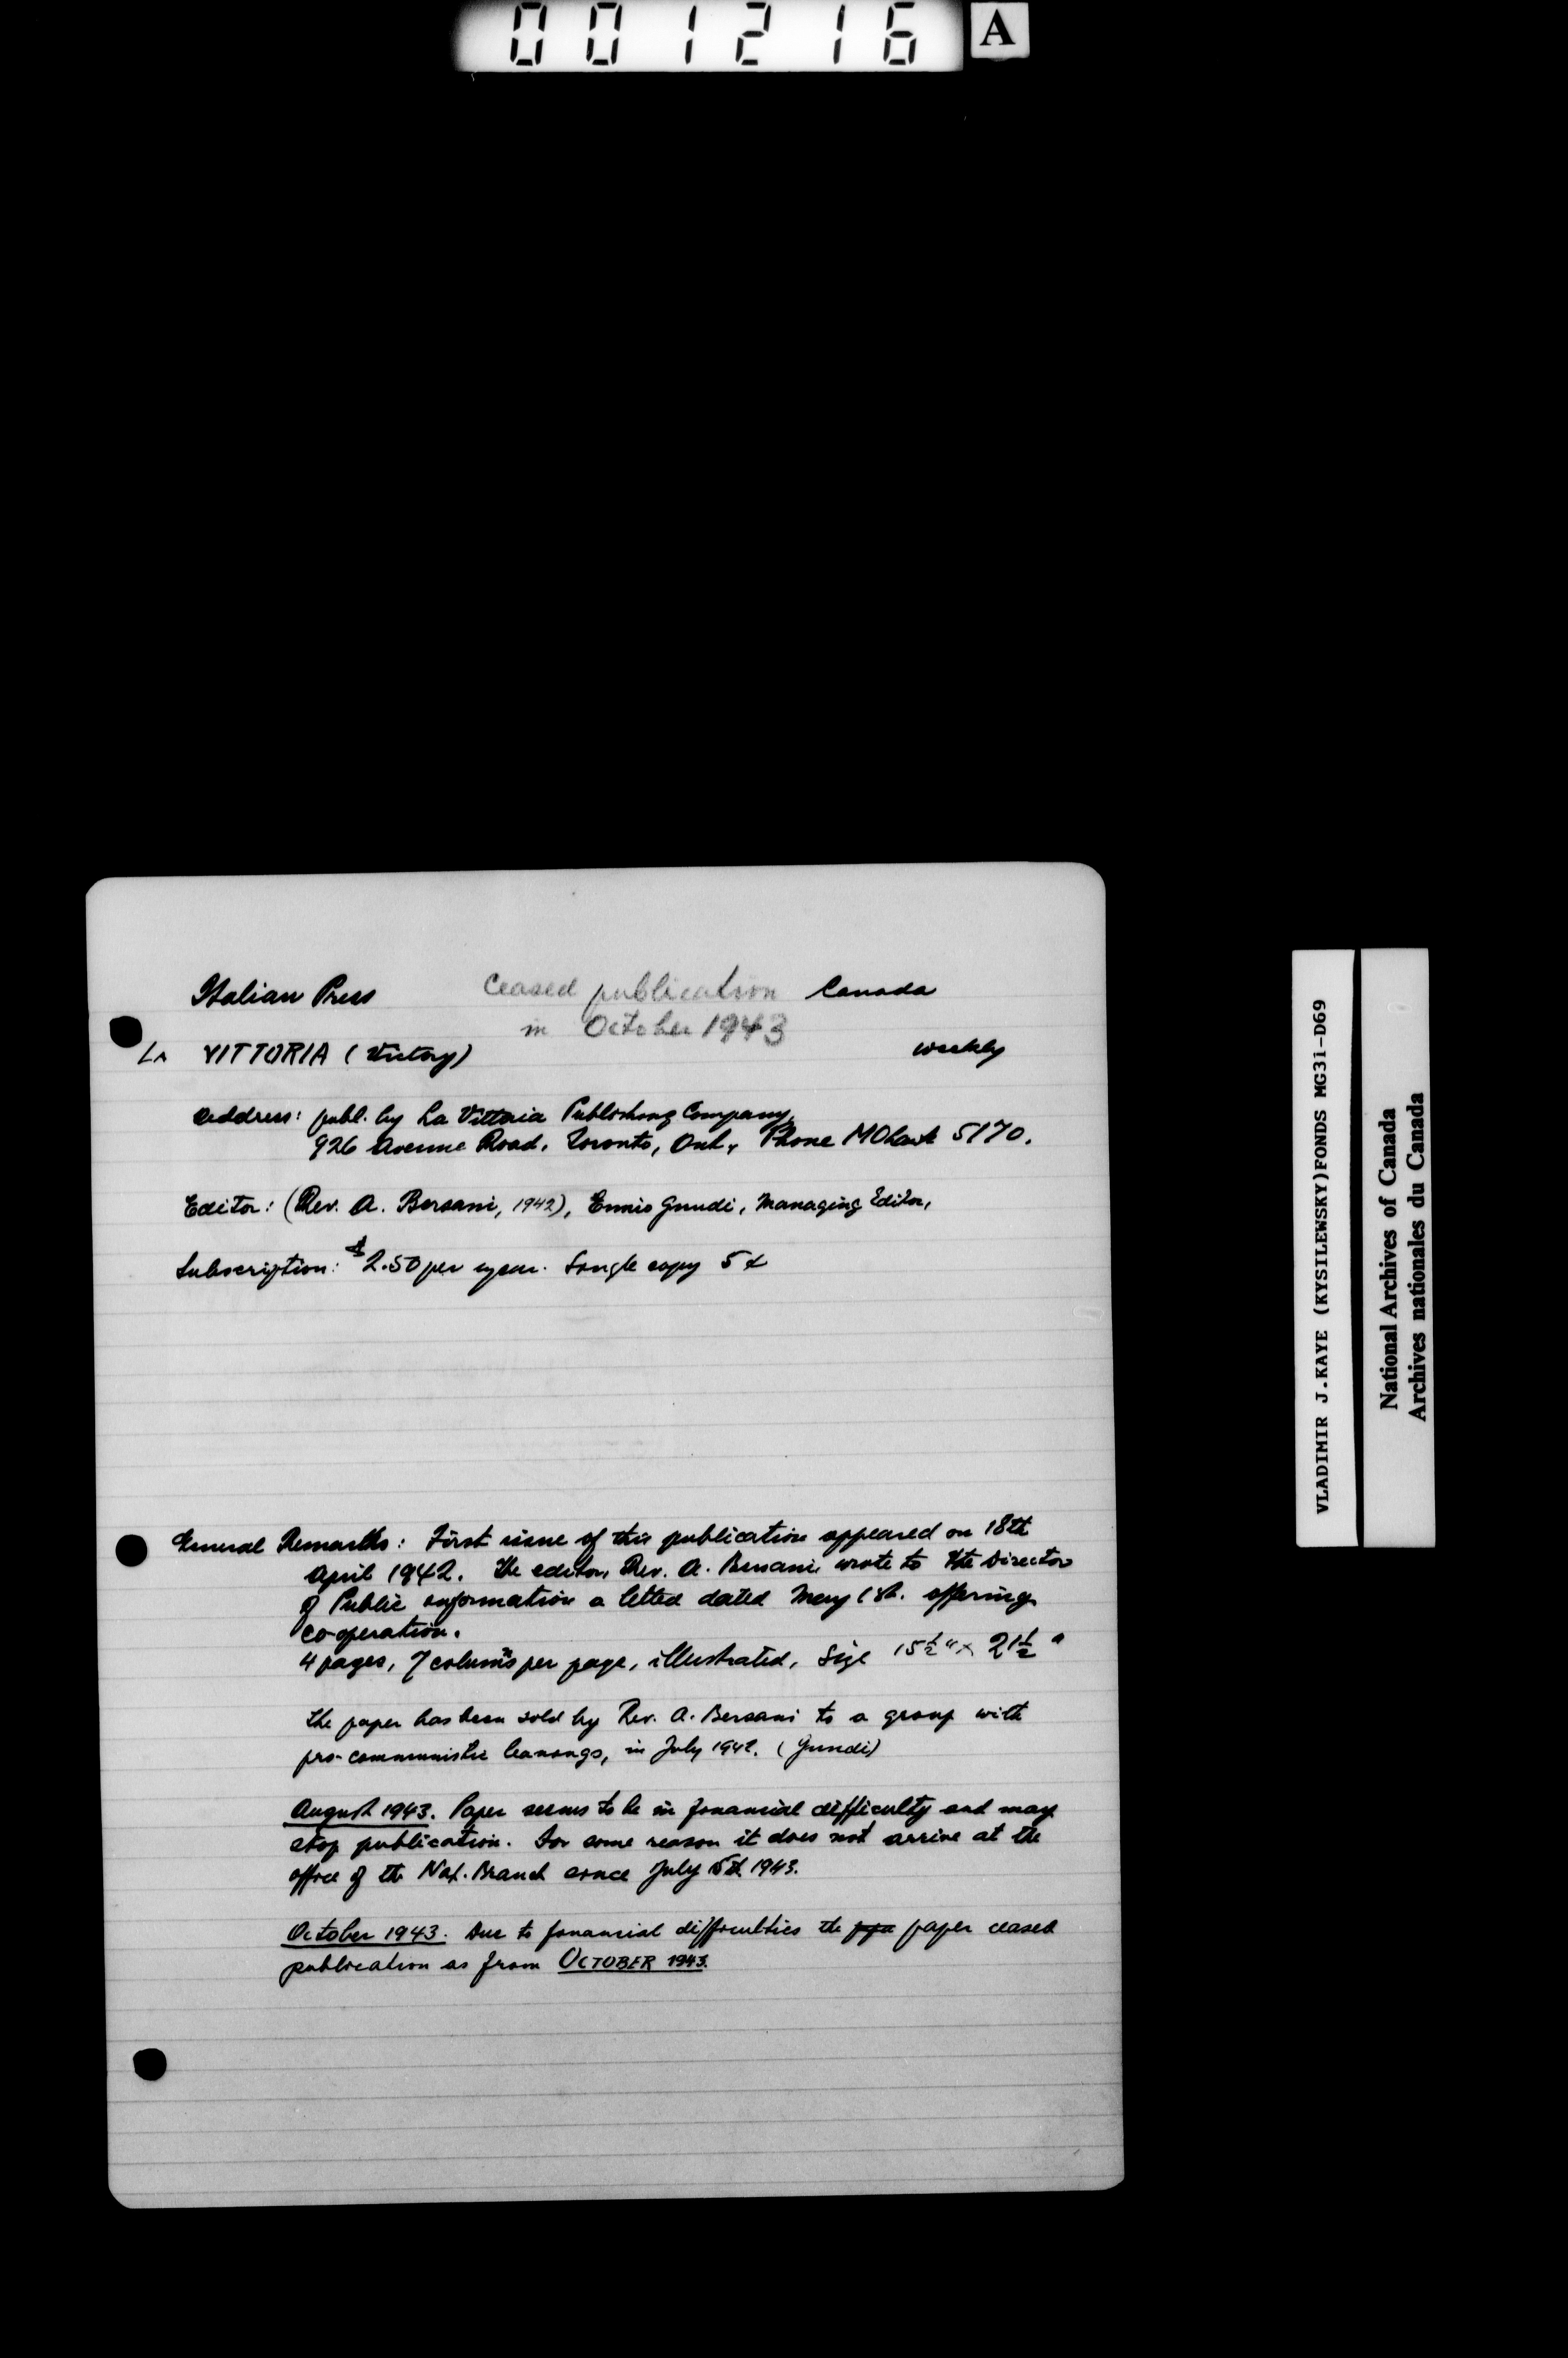 001216 A
Italian Press Ceased publication Canada
in October 1943
LA VITTORIA (Victory) weekly
Address: publ. by La Vittoria Publishing Company,
926 Avenue Road, Toronto, Ont., Phone MOhawk 5170.
Editor: (Rev. A. Bersani, 1942), Ennio Gnudi, Managing Editor,
Subscription: $2.50 per year. Single copy 5¢
General Remarks: First issue of this publication appeared on 18th
April 1942. The editor, Rev. A. Bersani, wrote to the Director
of Public information a letter dated May 1st. offering
co-operation.
4 pages, 7 columns per page, illustrated, Size 15½" x 21½"
The paper has been sold by Rev. A. Bersani to a group with
pro-communistic leanings, in July 1942. (Gnudi)
August 1943. Paper seems to be in financial difficulty and may
stop publication. For some reason it does not arrive at the
office of the Nat. Branch since July 1943.
October 1943. Due to financial difficulties the paper ceased
publication as from OCTOBER 1943.
VLADIMIR J.KAYE (KYSILEWSKY)FONDS MG31-D69
National Archives of Canada
Archives nationales du Canada